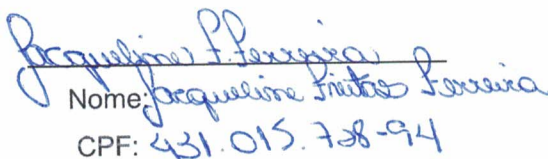 Jacqueline F. Ferreira
Nome: Jacqueline Freitas Ferreira
CPF: 431.015.738-94